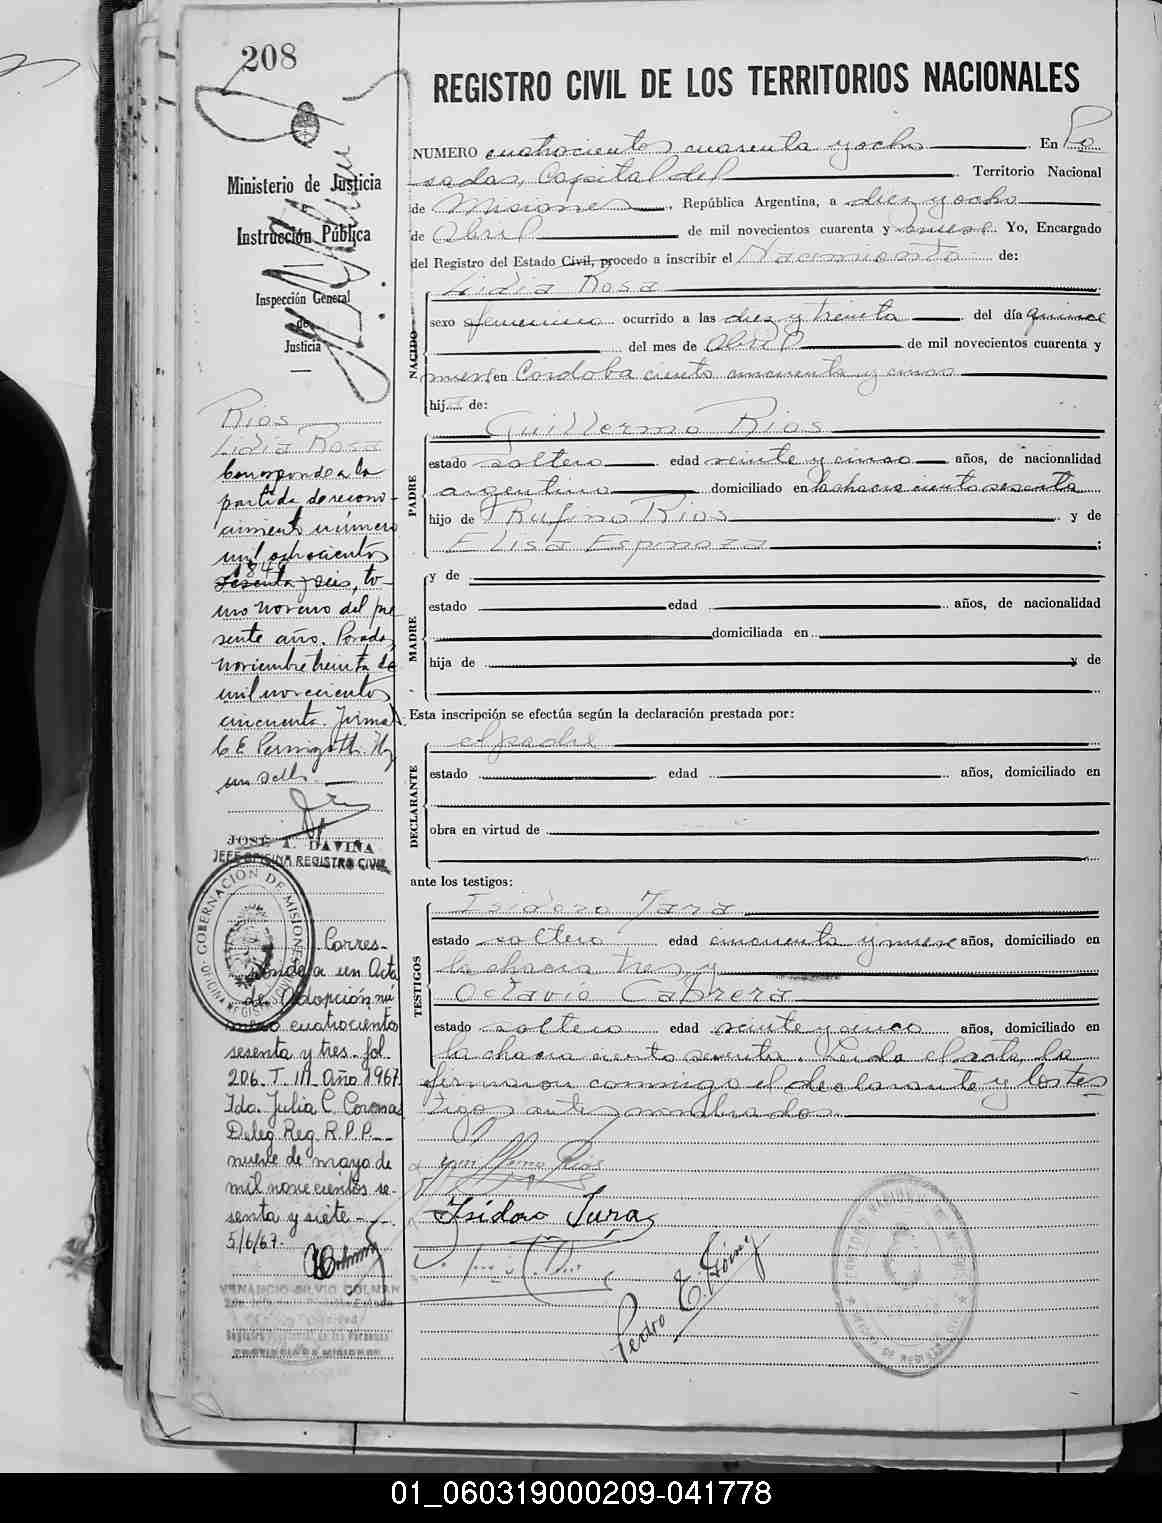 208
Ministerio de Justicia
e
Instrucción Pública
Inspección General
de
Justicia
REGISTRO CIVIL DE LOS TERRITORIOS NACIONALES
NUMERO cuatrocientos cuarenta y ocho En Po
sadas, Capital del Territorio Nacional
de Misiones, República Argentina, a diez y ocho
de Abril de mil novecientos cuarenta y nueve. Yo, Encargado
del Registro del Estado Civil, procedo a inscribir el Nacimiento de:
NACIDO
Lidia Rosa
sexo femenino ocurrido a las diez y treinta del día quince
del mes de Abril de mil novecientos cuarenta y
nueve en Córdoba ciento cincuenta y cinco
hij de:
PADRE
Guillermo Rios
estado soltero edad veinte y cinco años, de nacionalidad
argentino domiciliado en la chacra ciento sesenta
hijo de Rufino Rios y de
Elisa Espinoza ;
MADRE
y de
estado edad años, de nacionalidad
domiciliada en
hija de y de
Esta inscripción se efectúa según la declaración prestada por:
DECLARANTE
el padre
estado edad años, domiciliado en
obra en virtud de
ante los testigos:
TESTIGOS
Isidoro Jara
estado soltero edad cincuenta y nueve años, domiciliado en
la chacra tres y
Octavio Cabrera
estado soltero edad veinte y cinco años, domiciliado en
la chacra ciento sesenta. Leida el acta, la
firmaron conmigo el declarante y los tes
tigos ante nombrados.
Guillermo Rios
Isidoro Jara
Pedro E. Gómez
Rios
Lidia Rosa
Corresponde a la
partida de recono-
cimiento número
mil ochocientos
1846
sesenta y seis, to-
mo noveno del pre
sente año. Posadas,
Noviembre treinta de
mil novecientos
cincuenta. Firmado.
C. E. Hay
un sello.
JOSÉ A. DAVIÑA
JEFE OFICINA REGISTRO CIVIL
GOBERNACION DE MISIONES
Corres-
ponde a un Acta
de Adopción, nú
mero cuatrocientos
sesenta y tres. fol.
206. T. III Año 1967.
Fdo. Julia C. Coronas
Deleg. Reg. R.P.P.
nueve de mayo de
mil novecientos se-
senta y siete
5/6/67.
VENANCIO SILVIO COLMAN
01_060319000209-041778